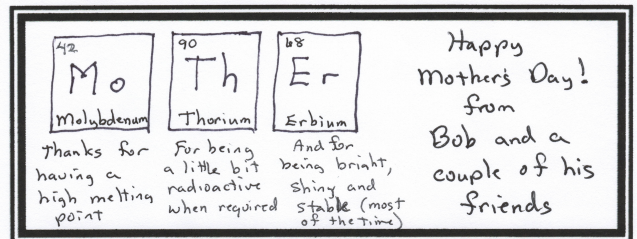 42
Mo
Molybdenum
Thanks for
having a
high melting
point
90
Th
Thorium
For being
a little bit
radioactive
when required
68
Er
Erbium
And for
being bright,
shiny and
stable (most
of the time)
Happy
Mother's Day!
from
Bob and a
couple of his
friends